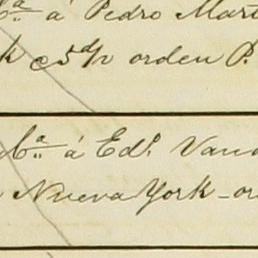 á Pedro Mart
k @ 5 d/v orden P.
á Ed. Vand
Nueva York - or